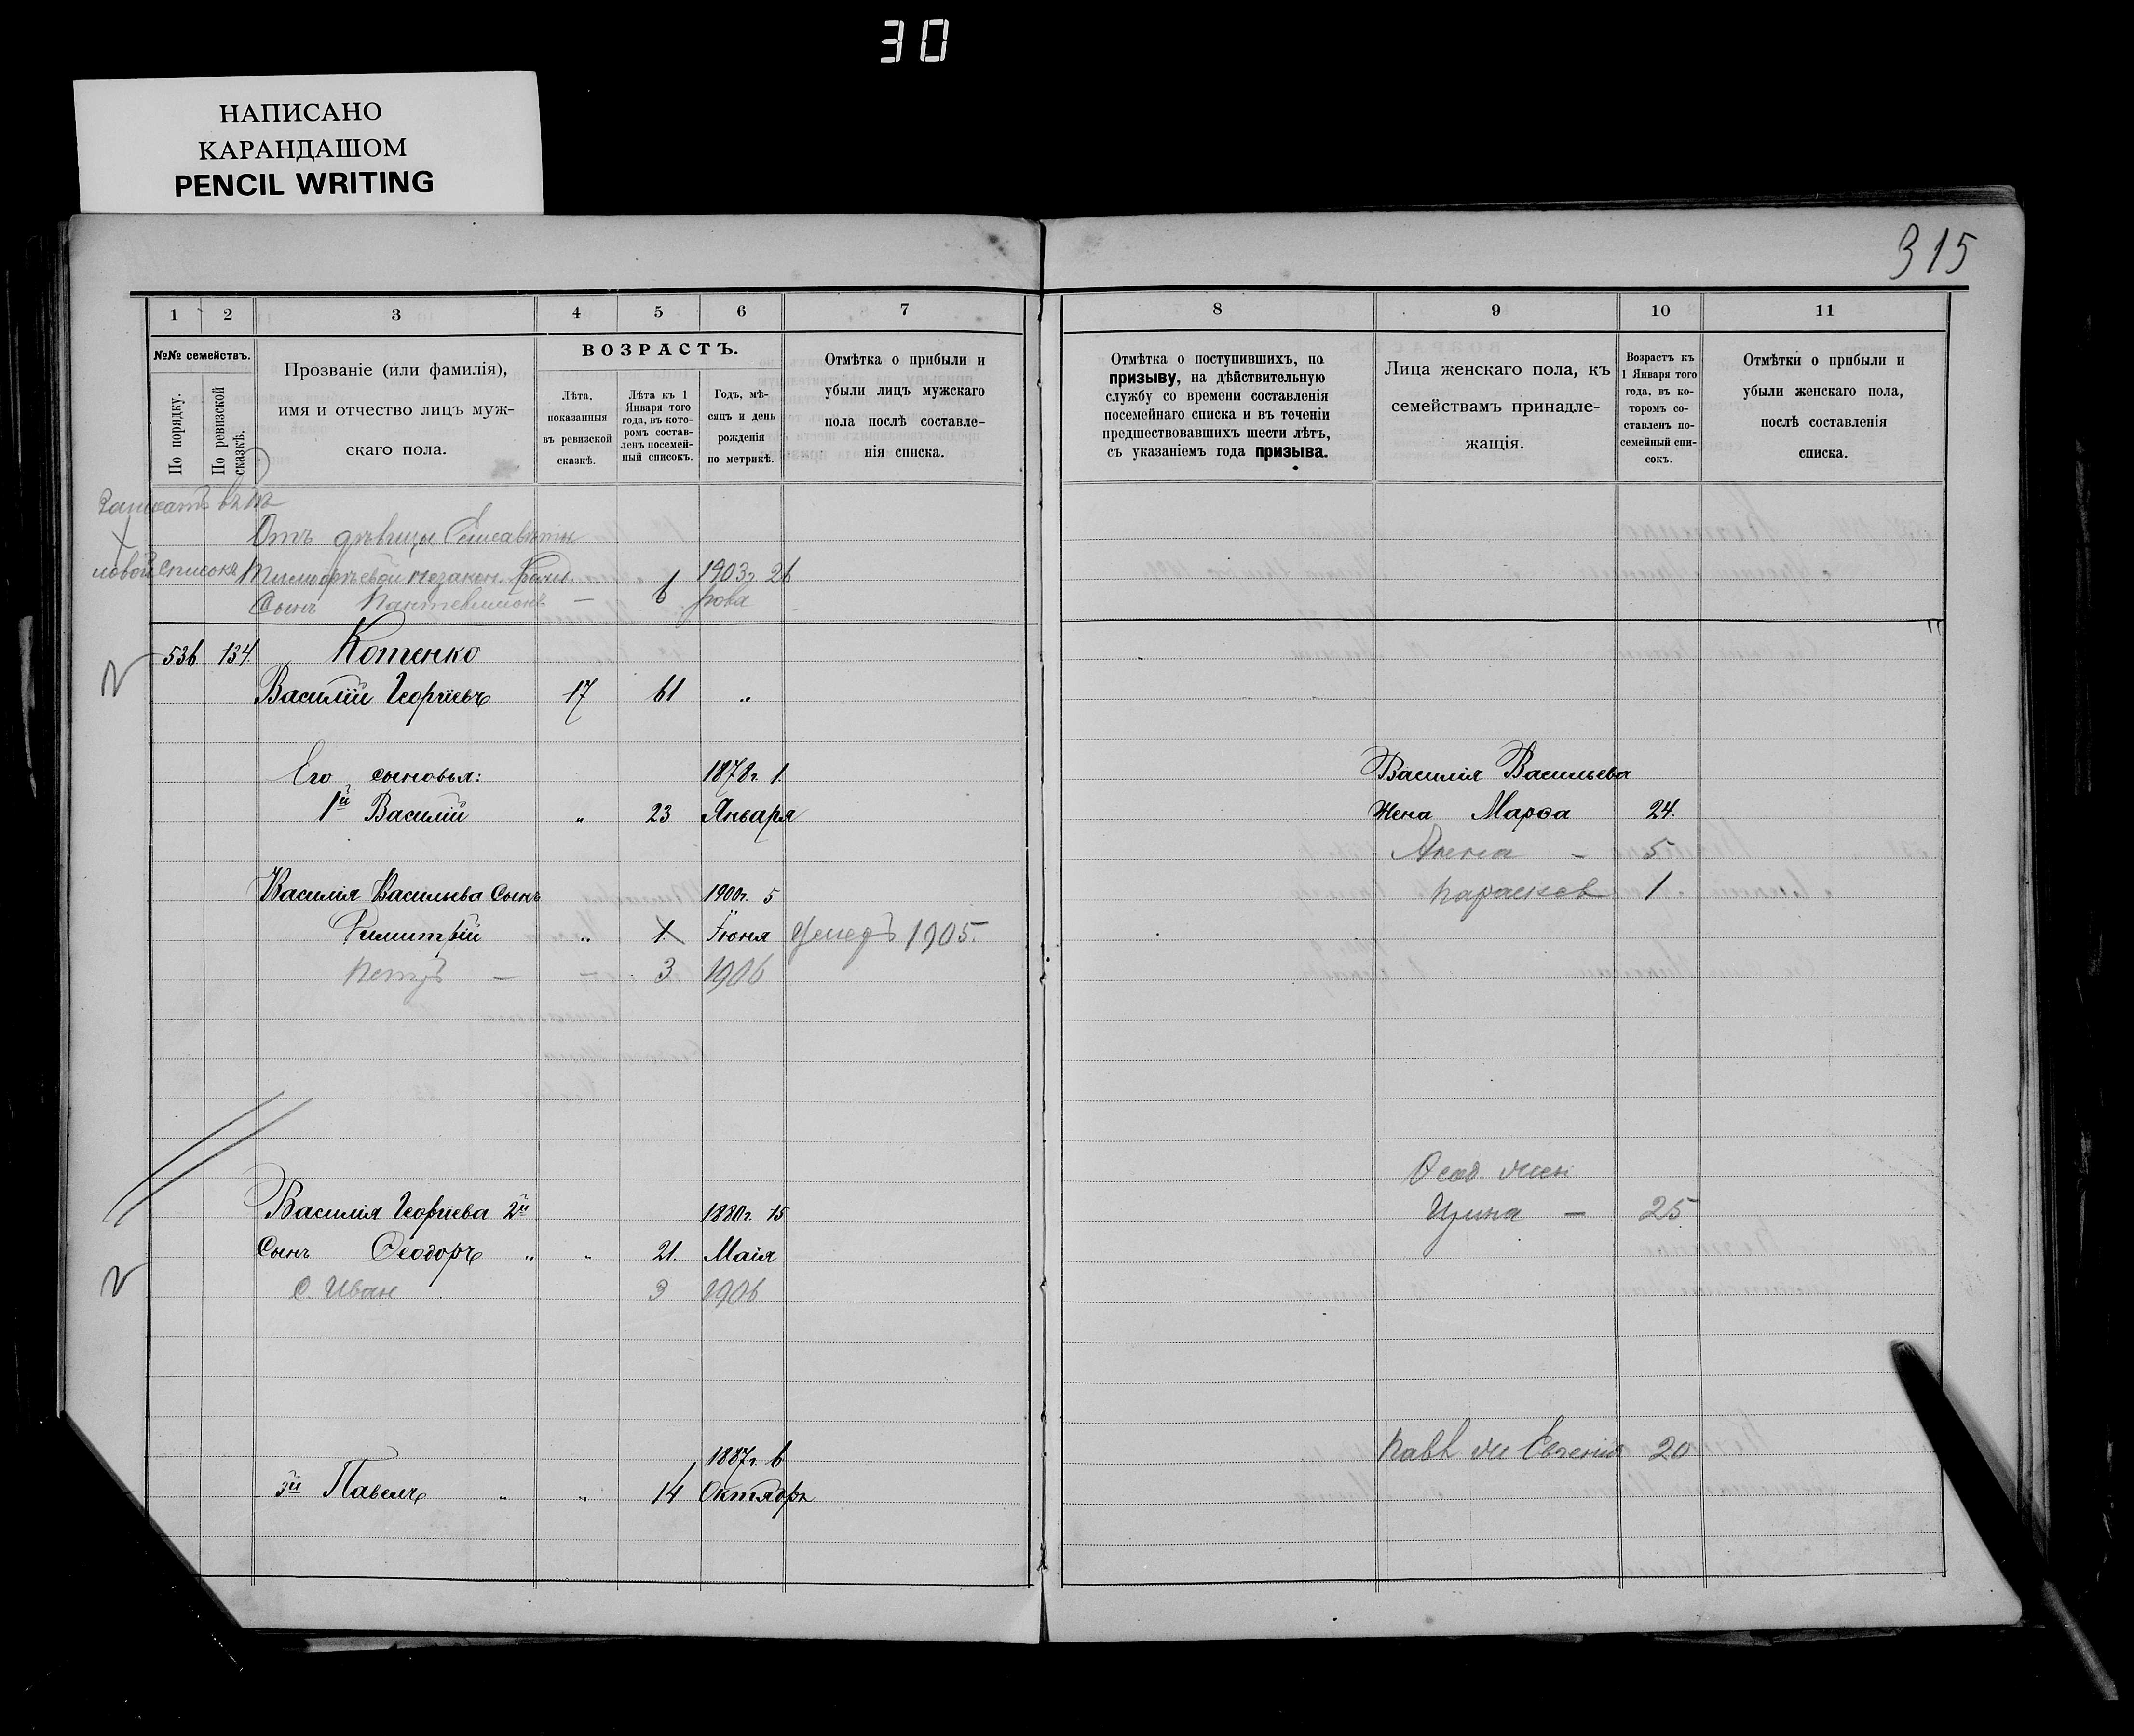 30
НАПИСАНО
КАРАНДАШОМ
PENCIL WRITING
315
1 2 3 4 5 6 7 8 9 10 11
№№ семействъ.
По порядку.
По ревизской сказкѣ.
Прозваніе (или фамилія),
имя и отчество лицъ муж-
скаго пола.
ВОЗРАСТЪ.
Лѣта,
показанныя
въ ревизской
сказкѣ.
Лѣта къ 1
Января того
года, въ кото-
ромъ состав-
ленъ посемей-
ный списокъ.
Годъ, мѣ-
сяцъ и день
рожденія
по метрикѣ.
Отмѣтка о прибыли и
убыли лицъ мужскаго
пола послѣ составле-
нія списка.
Отмѣтка о поступившихъ, по
призыву, на дѣйствительную
службу со времени составленія
посемейнаго списка и въ теченіи
предшествовавшихъ шести лѣтъ,
съ указаніемъ года призыва.
Лица женскаго пола, къ
семействамъ принадле-
жащія.
Возрастъ къ
1 Января того
года, въ ко-
торомъ со-
ставленъ по-
семейный спи-
сокъ.
Отмѣтки о прибыли и
убыли женскаго пола,
послѣ составленія
списка.
Отъ дѣвицы Елисаветы
новой списокъ Тимофѣевой незакон. 1903г. 26
Сынъ Пантелимонъ — 6
536 134 Котенко
Василій Георгіевъ 17 61 „
Его сыновья: 1878г. 1. Василія Васильева
1й Василій „ 23 Января жена Марѳа 24.
Алена – 5
Василія Васильева Сынъ 1900г. 5 Параскев 1
Димитрій „ 1. Іюня 1905.
Петръ — – 3 1906
Ѳеод жен
Василія Георгіева 2й 1880г. 15 Ирина — 25
Сынъ Ѳеодоръ „ „ 21. Маія
с. Иван 3 1906
1887г. 6 Павл же Евгенія 20
3й Павелъ „ „ 14 Октября